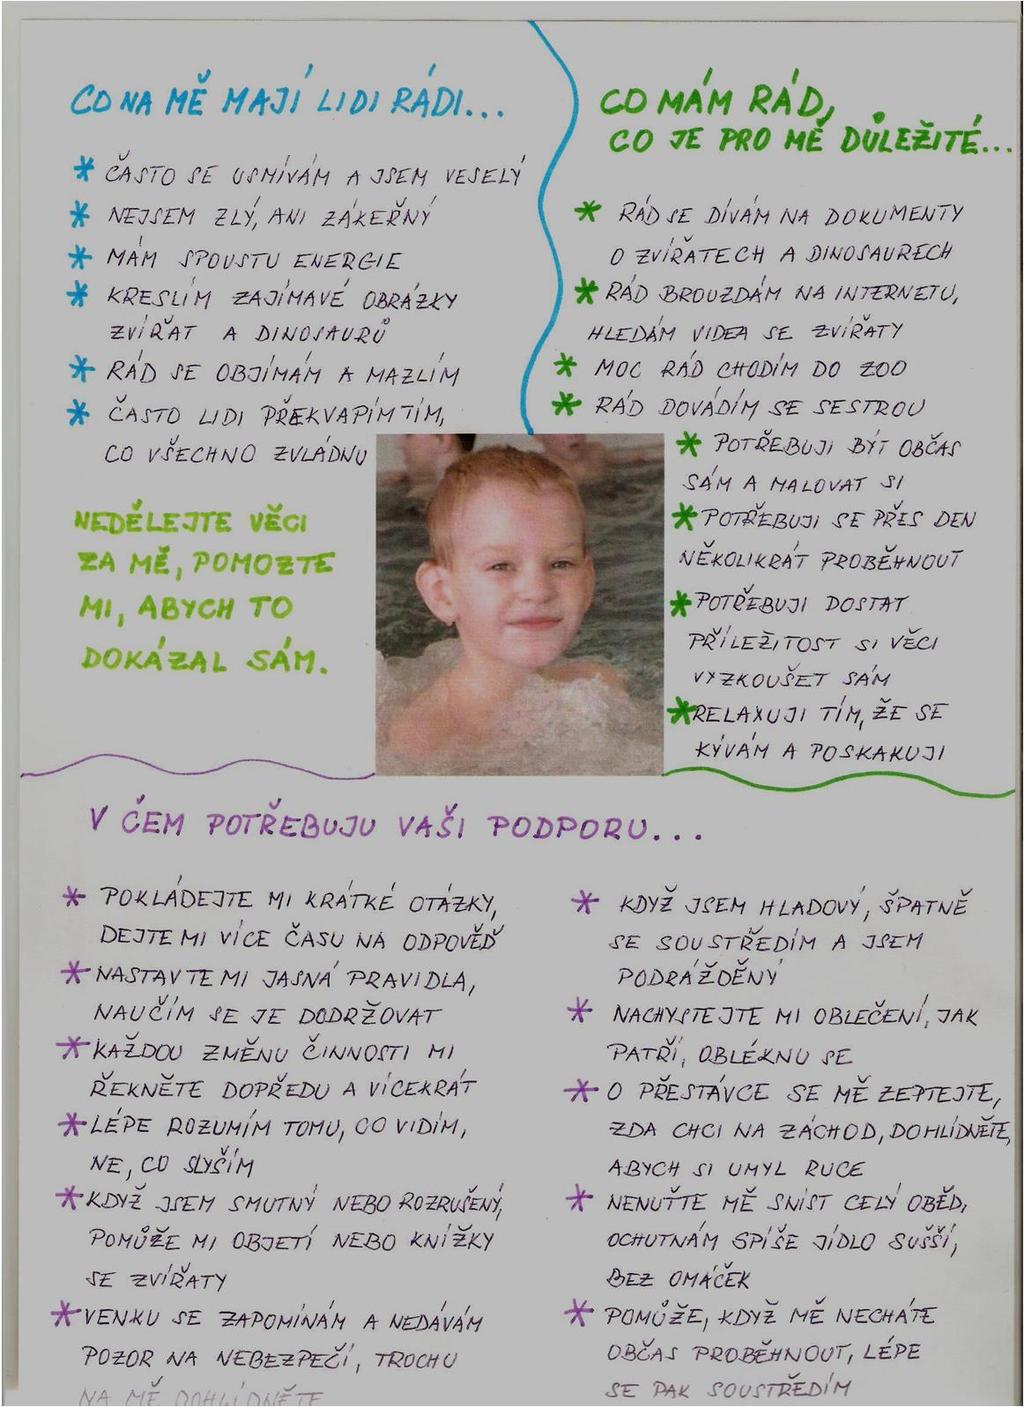 CO NA MĚ MAJÍ LIDI RÁDI...
* ČASTO SE USMÍVÁM A JSEM VESELÝ
* NEJSEM ZLÝ, ANI ZÁKEŘNÝ
* MÁM SPOUSTU ENERGIE
* KRESLÍM ZAJÍMAVÉ OBRÁZKY
ZVÍŘAT A DINOSAURŮ
* RÁD SE OBJÍMÁM A MAZLÍM
* ČASTO LIDI PŘEKVAPÍM TÍM,
CO VŠECHNO ZVLÁDNU
NEDĚLEJTE VĚCI
ZA MĚ, POMOZTE
MI, ABYCH TO
DOKÁZAL SÁM.
CO MÁM RÁD,
CO JE PRO MĚ DŮLEŽITÉ...
* RÁD SE DÍVÁM NA DOKUMENTY
O ZVÍŘATECH A DINOSAURECH
* RÁD BROUZDÁM NA INTERNETU,
HLEDÁM VIDEA SE ZVÍŘATY
* MOC RÁD CHODÍM DO ZOO
* RÁD DOVÁDÍM SE SESTROU
* POTŘEBUJI BÝT OBČAS
SÁM A MALOVAT SI
* POTŘEBUJI SE PŘES DEN
NĚKOLIKRÁT PROBĚHNOUT
* POTŘEBUJI DOSTAT
PŘÍLEŽITOST SI VĚCI
VYZKOUŠET SÁM
* RELAXUJI TÍM, ŽE SE
KÝVÁM A POSKAKUJI
V ČEM POTŘEBUJU VAŠI PODPORU...
* POKLÁDEJTE MI KRÁTKÉ OTÁZKY,
DEJTE MI VÍCE ČASU NA ODPOVĚĎ
* NASTAVTE MI JASNÁ PRAVIDLA,
NAUČÍM SE JE DODRŽOVAT
* KAŽDOU ZMĚNU ČINNOSTI MI
ŘEKNĚTE DOPŘEDU A VÍCEKRÁT
* LÉPE ROZUMÍM TOMU, CO VIDÍM,
NE, CO SLYŠÍM
* KDYŽ JSEM SMUTNÝ NEBO ROZRUŠENÝ,
POMŮŽE MI OBJETÍ NEBO KNÍŽKY
SE ZVÍŘATY
* VENKU SE ZAPOMÍNÁM A NEDÁVÁM
POZOR NA NEBEZPEČÍ, TROCHU
NA MĚ DOHLÍDNĚTE
* KDYŽ JSEM HLADOVÝ, ŠPATNĚ
SE SOUSTŘEDÍM A JSEM
PODRÁŽDĚNÝ
* NACHYSTEJTE MI OBLEČENÍ, JAK
PATŘÍ, OBLÉKNU SE
* O PŘESTÁVCE SE MĚ ZEPTEJTE,
ZDA CHCI NA ZÁCHOD, DOHLÍDNĚTE,
ABYCH SI UMYL RUCE
* NENUŤTE MĚ SNÍST CELÝ OBĚD,
OCHUTNÁM SPÍŠE JÍDLO SUŠŠÍ,
BEZ OMÁČEK
* POMŮŽE, KDYŽ MĚ NECHÁTE
OBČAS PROBĚHNOUT, LÉPE
SE PAK SOUSTŘEDÍM